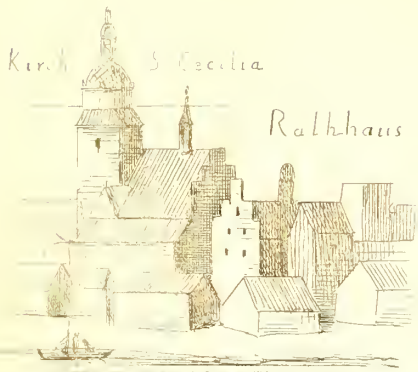 Kirch S Cecilia
Rathhaus